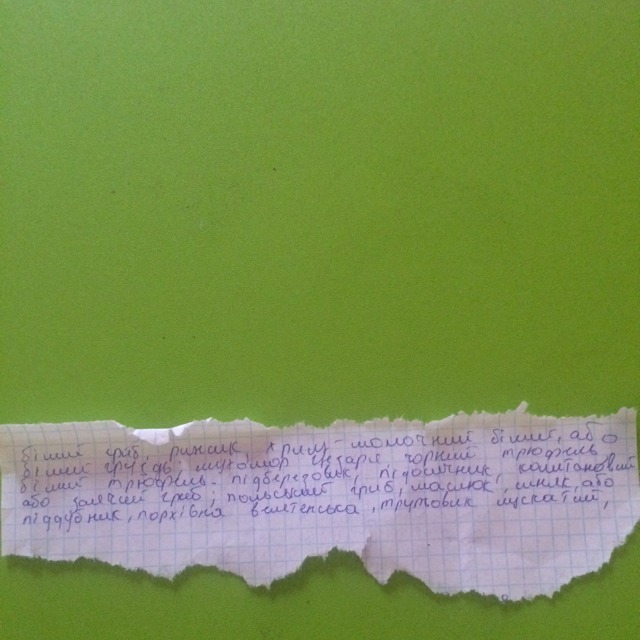 білий гриб, рижик, хрящ-молочний білий, або
білий груздь, мухомор цезаря чорний трюфель
білий трюфель. підберезовик, підосичник, каштановий
або заячий гриб, польський гриб, маслюк, або
піддубник, порхівка велетенська, трутовик лускатий,